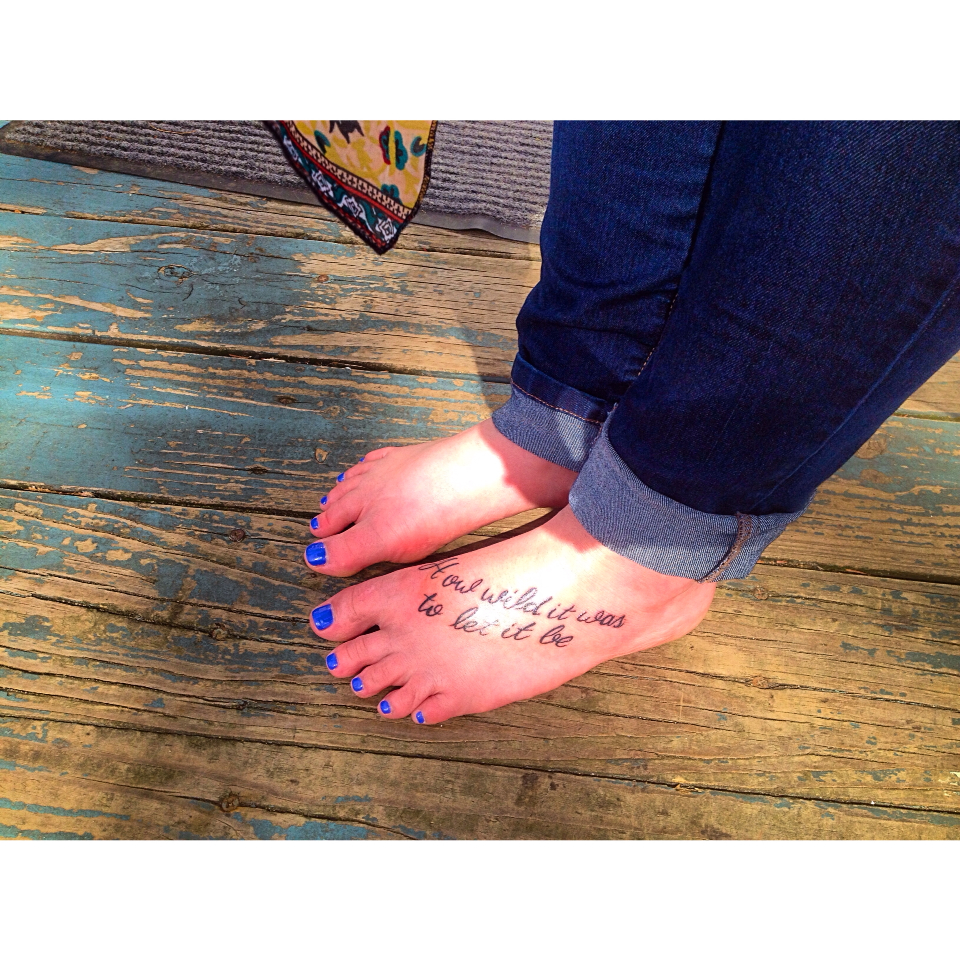 How wild it was
to let it be